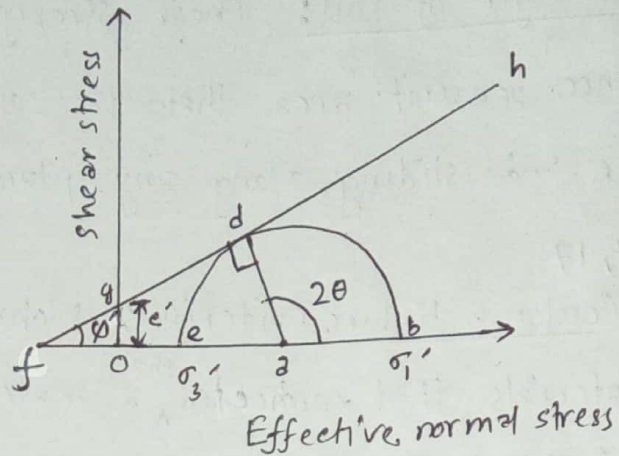 shear stress
h
d
g
φ'
c'
2θ
f
o
e
a
b
σ3'
σ1'
Effective normal stress